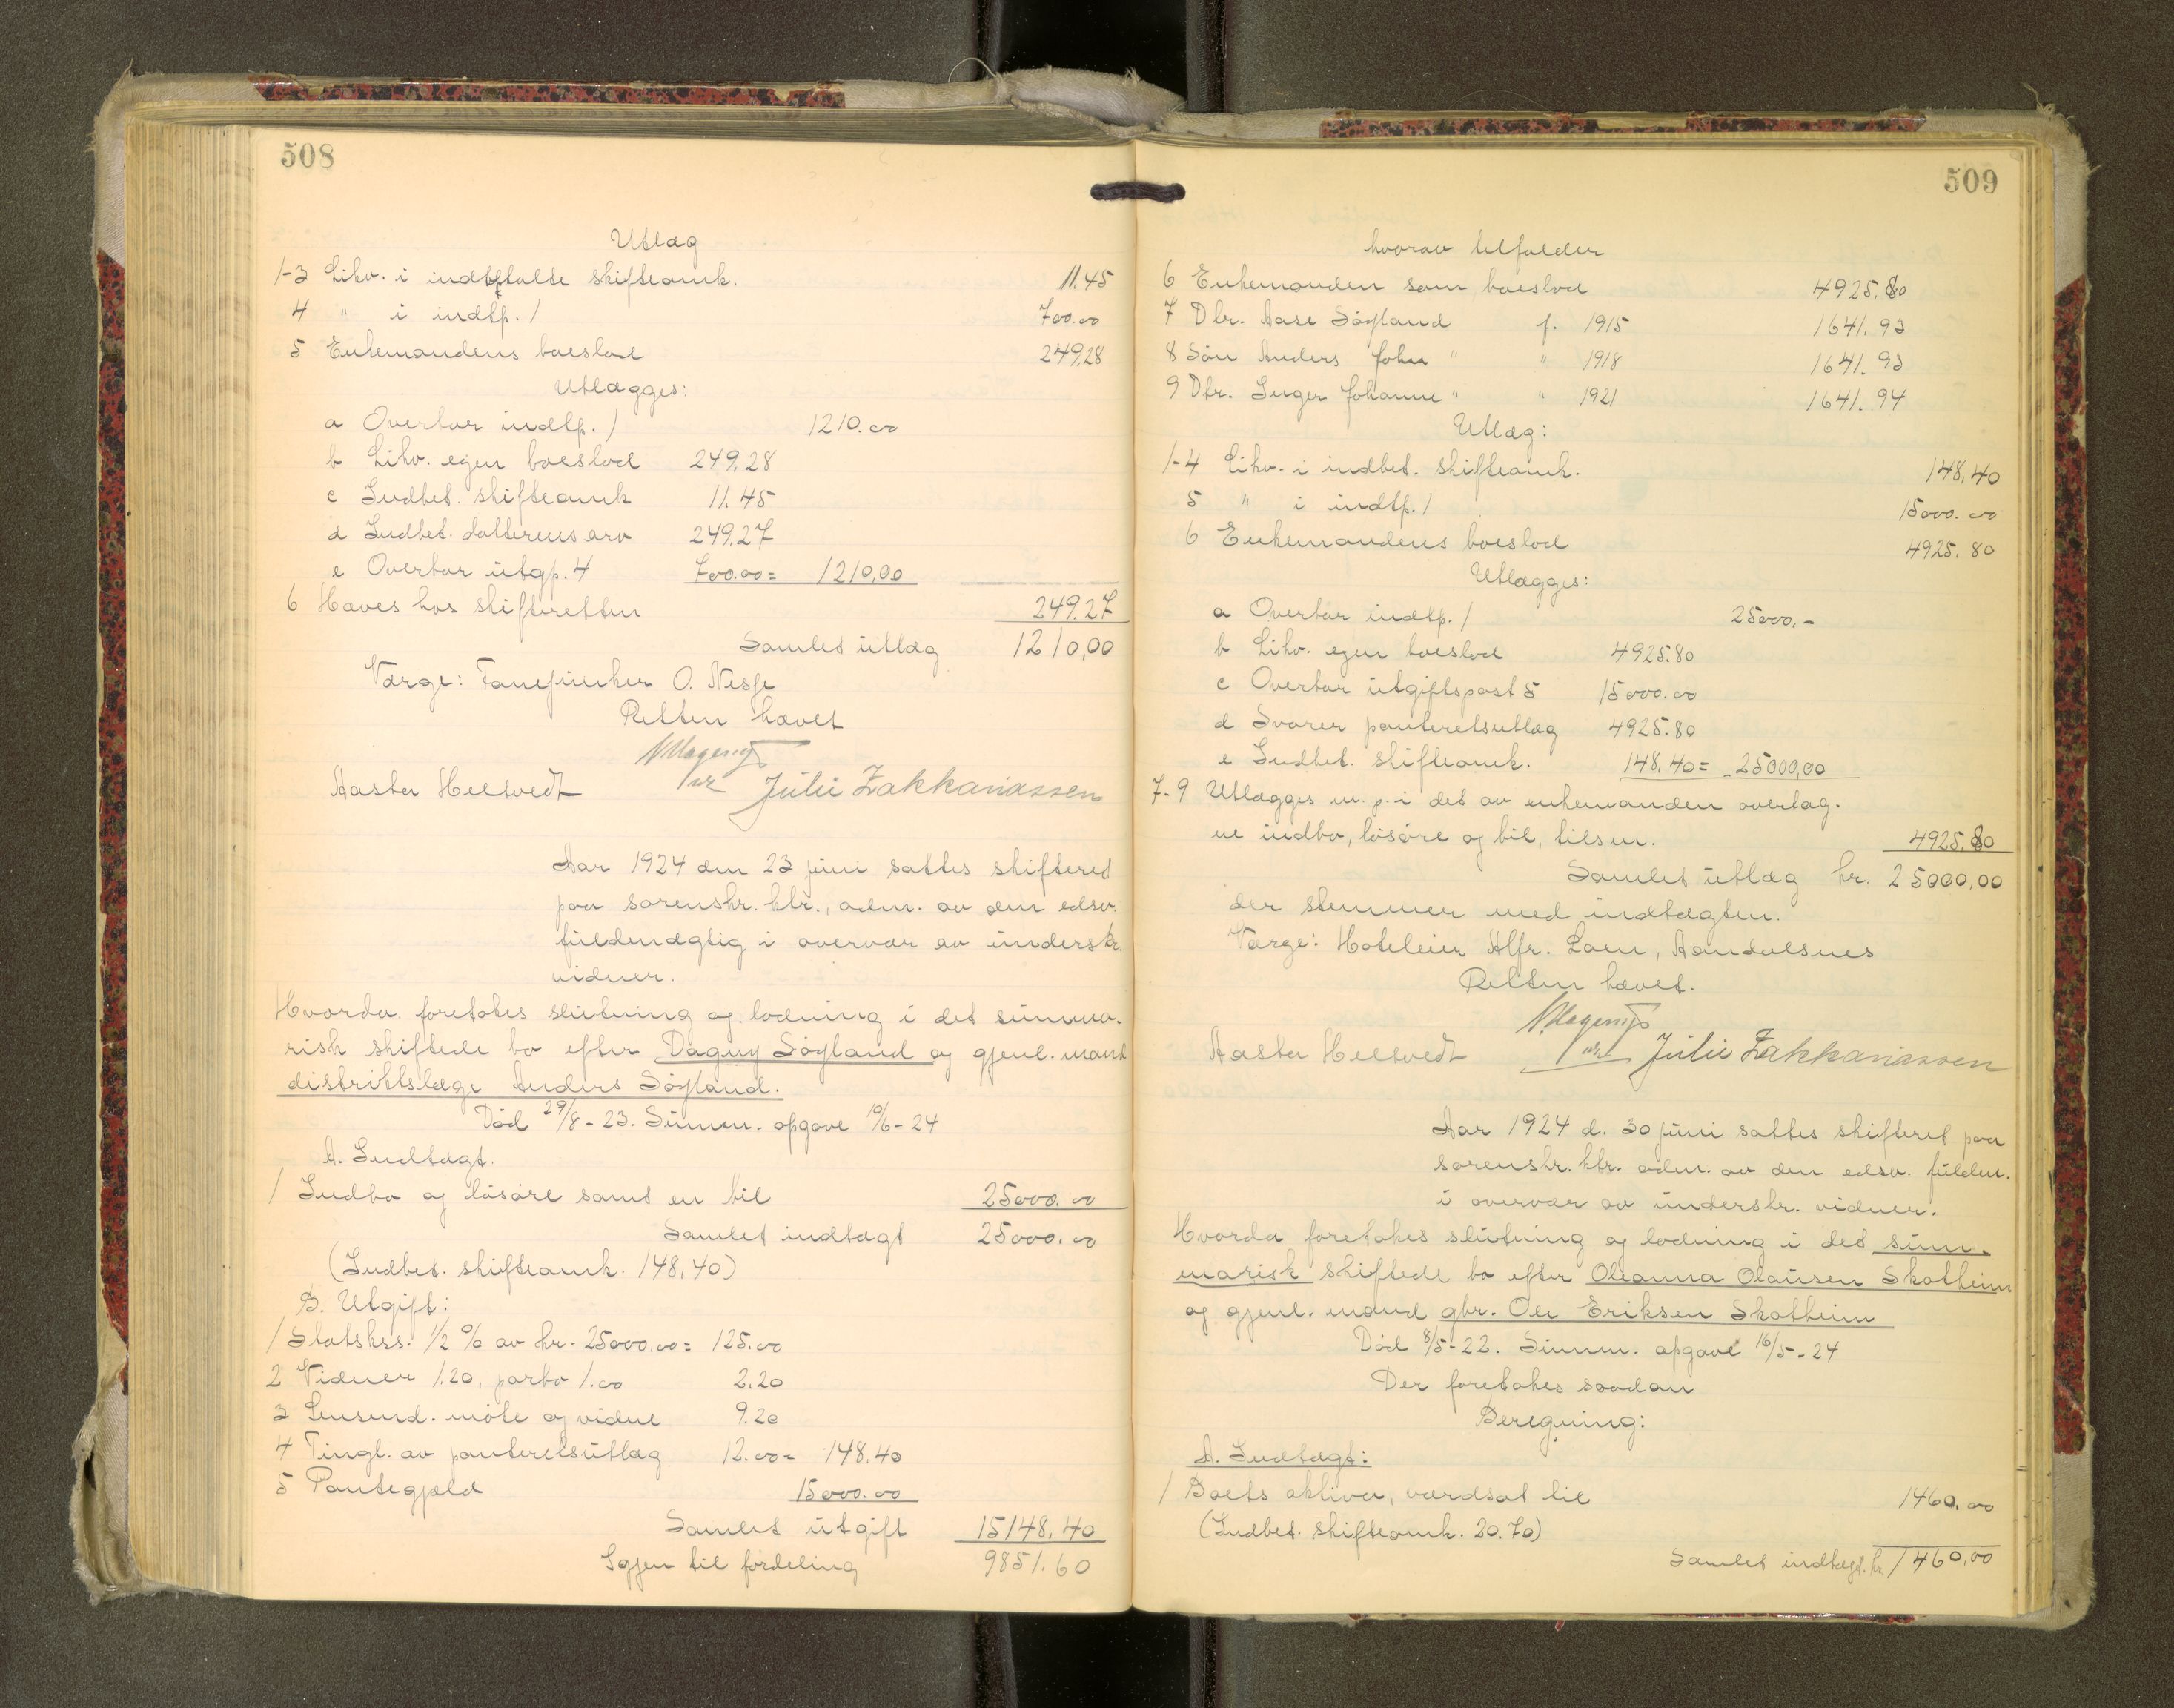 508
Utlæg
1-3 Likv. i indbetalte skifteomk. 11.45
4 " i indtp. 1 700.00
5 Enkemandens boeslod 249.28
Utlægges:
a Overtar indtp. 1 1210.00
b Likv. egen boeslod 249.28
c Indbet. skifteomk 11.45
d Indbet. datterens arv 249.27
e Overtar utgp. 4 700.00 = 1210,00
6 Haves hos skifteretten 249.27
Samlet utlæg 1210,00
Værge: Fanejunker O. Nesje
Retten hævet
Aasta Heltvedt Julie Zakkariassen
Aar 1924 den 23 juni sattes skifteret
paa sorenskr. ktr., adm. av den edsv.
fuldmægtig i overvær av underskr.
vidner.
Hvorda foretokes slutning og lodning i det summa-
risk skiftede bo efter Dagny Søyland og gjenl. mand
distriktslæge Anders Søyland.
Død 29/8-23. Summ. opgave 10/6-24
A. Indtægt.
1 Indbo og løsøre samt en bil 25000.00
Samlet indtægt 25000.00
(Indbet. skifteomk. 148,40)
B. Utgift:
1 Statskss. 1/2 % av kr. 25000.00 = 125.00
2 Vidner 1.20, porto 1.00 2.20
3 Lensmd. møte og vidne 9.20
4 Tingl. av panteretsutlæg 12.00 = 148.40
5 Pantegjæld 15000.00
Samlet utgift 15148.40
Igjen til fordeling 9851.60
509
hvorav tilfalder
6 Enkemanden som boeslod 4925.80
7 Dtr. Aase Søyland f. 1915 1641.93
8 Søn Anders John " " 1918 1641.93
9 Dtr. Inger Johanne " " 1921 1641.94
Utlæg:
1-4 Likv. i indbet. skifteomk. 148,40
5 " i indtp. 1 15000.00
6 Enkemandens boeslod 4925.80
Utlægges:
a Overtar indtp. 1 25000.-
b Likv. egen boeslod 4925.80
c Overtar utgiftspost 5 15000.00
d Svarer panteretsutlæg 4925.80
e Indbet. skifteomk. 148,40 = 25000,00
7-9 Utlægges m. p. i det av enkemanden overtag-
ne indbo, løsøre og bil, tilsm. 4925.80
Samlet utlæg kr. 25000,00
der stemmer med indtægten.
Værge: Hoteleier Alfr. Loen, Aandalsnes
Retten hævet.
Aasta Heltvedt Julie Zakkariassen
Aar 1924 d. 30 juni sattes skifteret paa
sorenskr. ktr. adm. av den edsv. fuldm.
i overvær av underskr. vidner.
Hvorda foretokes slutning og lodning i det sum-
marisk skiftede bo efter Oleanna Olausen Skotheim
og gjenl. mand gbr. Ole Eriksen Skotheim
Død 8/5-22. Summ. opgave 16/5-24
Der foretokes saadan
Beregning:
A. Indtægt:
1 Boets aktiva, værdsat til 1460.00
(Indbet. skifteomk. 20.70)
Samlet indtægt. kr. 1460,00